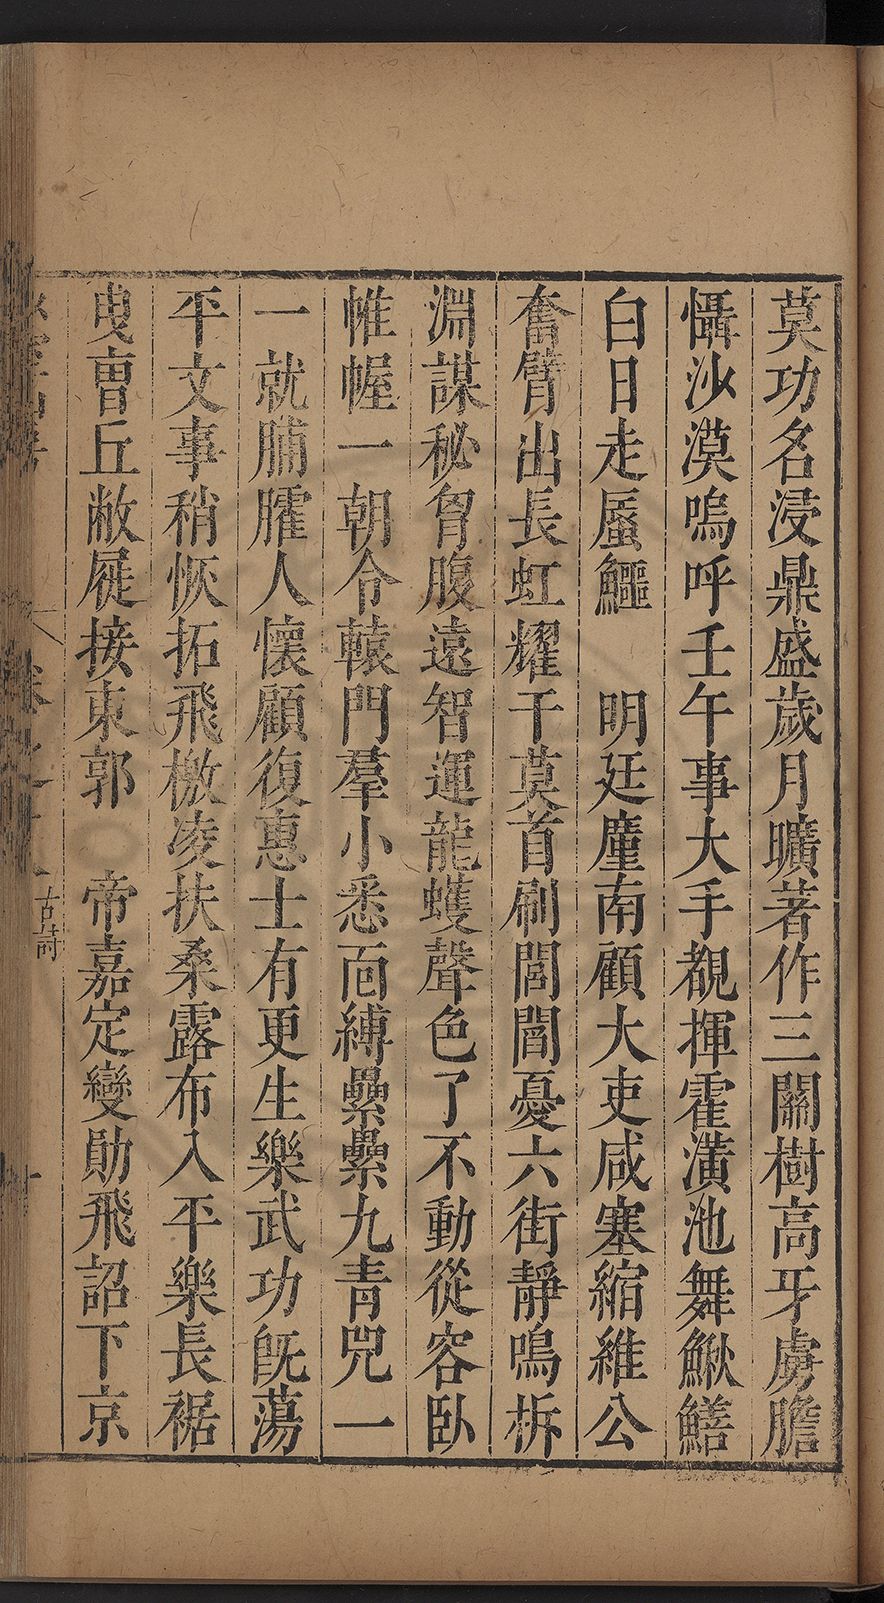 莫功名浸鼎盛歲月曠著作三關樹高牙虜膽
懾沙漠嗚呼壬午事大手覩揮霍潢池舞鰍鱔
白日走蜃鱷　明廷廑南顧大吏咸塞縮維公
奮臂出長虹耀干莫首刷閭閻憂六街靜鳴柝
淵謀秘胷腹遠智運龍蠖聲色了不動從容臥
帷幄一朝令轅門羣小悉面縛纍纍九青兕一
一就脯臛人懷顧復惠士有更生樂武功旣蕩
平文事稍恢拓飛檄凌扶桑露布入平樂長裾
曳曺丘敝屣接東郭　帝嘉定變勛飛詔下京
古詩